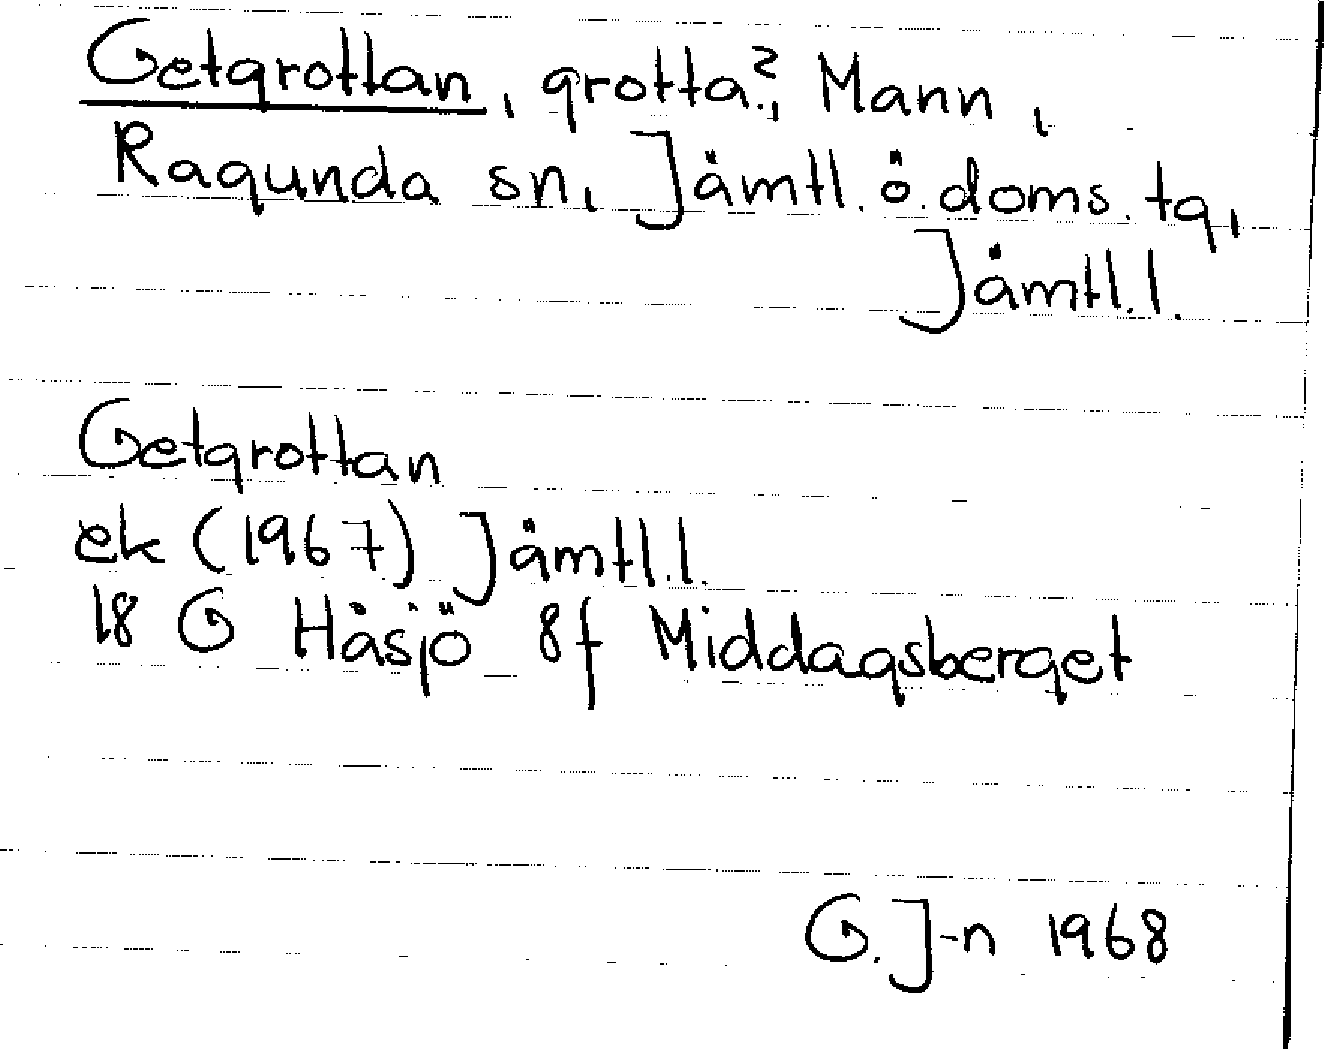 Getgrottan, grotta?, Mann,
Ragunda sn, Jämtl. ö. doms. tg,
Jämtl. l.
Getgrottan
ek (1967) Jämtl. l.
18 G Håsjö 8f Middagsberget
G. J-n 1968